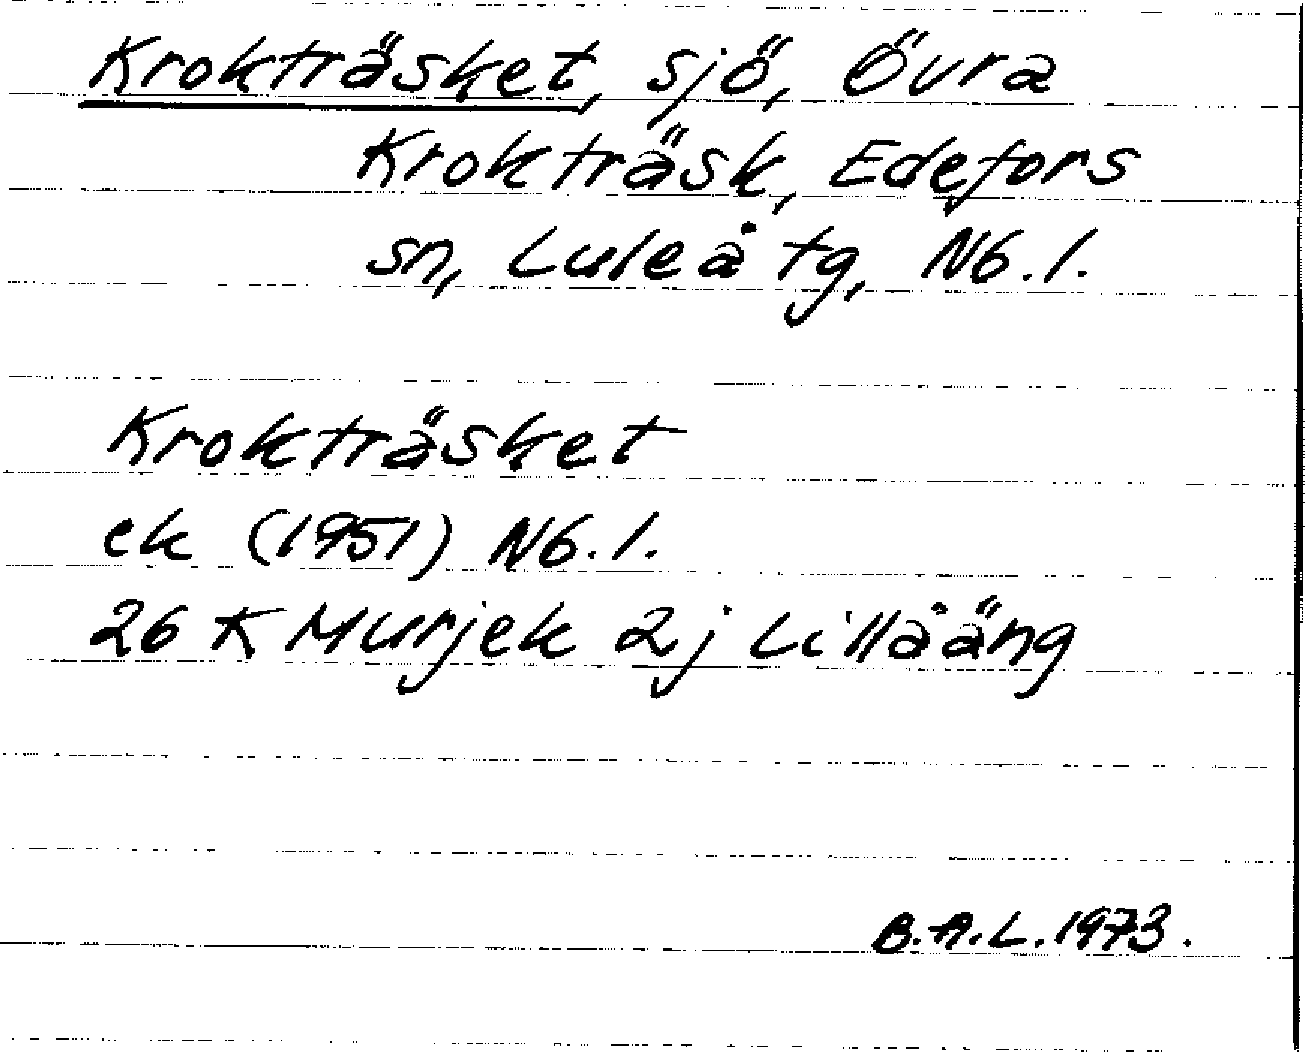 Krokträsket, sjö, Övra
Krokträsk, Edefors
sn, Luleå tg, Nb.l.
Krokträsket
ek (1951) Nb.l.
26 K Murjek 2j Lillååäng
B.A.L. 1973.